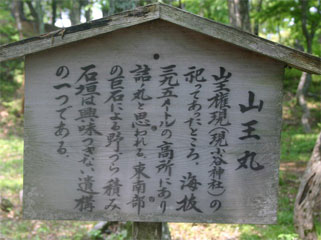 山王丸
山王権現(現小谷神社)の
祀ってあったところ、海抜
三九五メートルの高所にあり
詰の丸と思われる。東南部
の巨石による野づら積み
石垣は興味つきない遺構
の一つである。